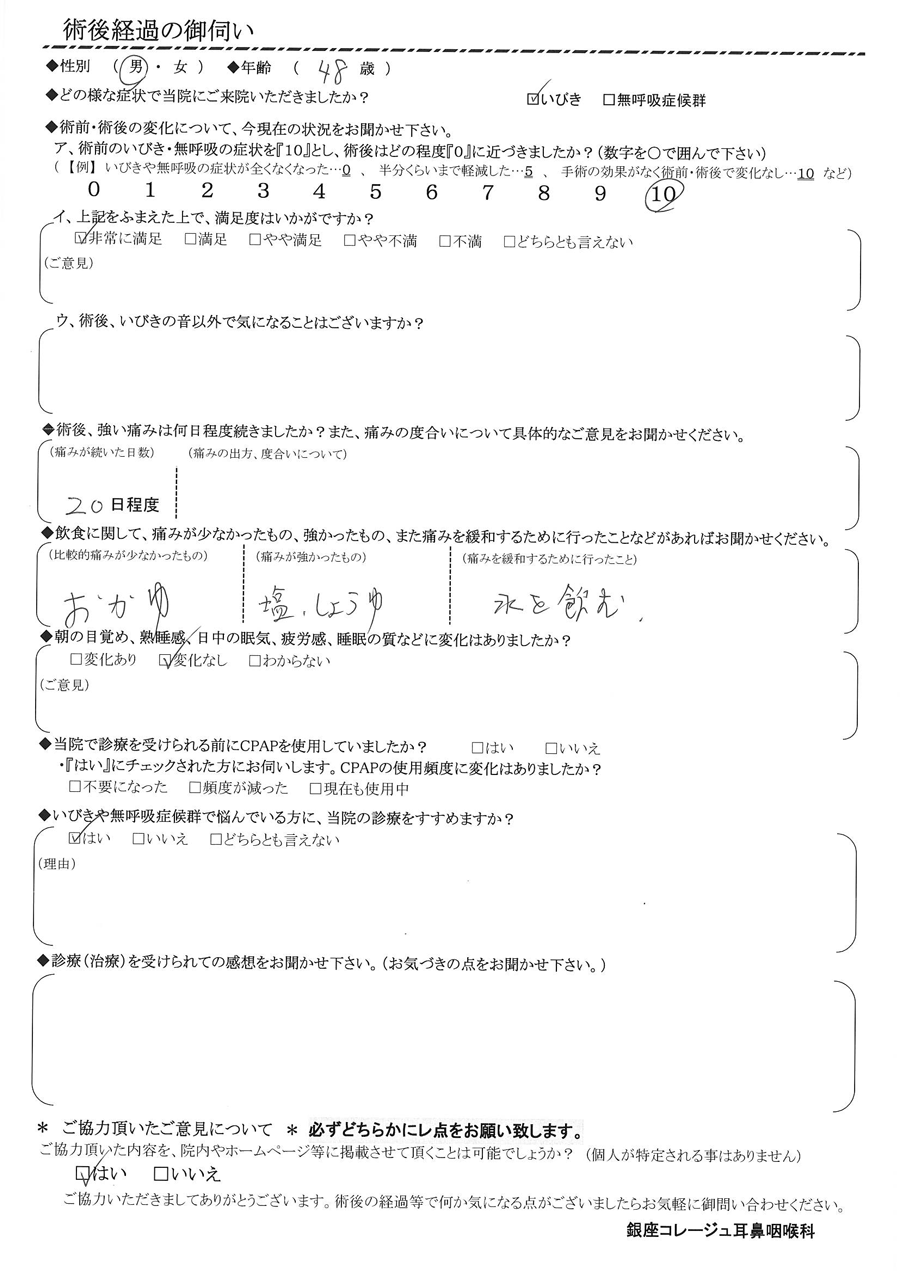 術後経過の御伺い
◆性別 （ 男 ・ 女 ） ◆年齢 （ 48 歳 ）
◆どの様な症状で当院にご来院いただきましたか？ ☑いびき □無呼吸症候群
◆術前・術後の変化について、今現在の状況をお聞かせ下さい。
ア、術前のいびき・無呼吸の症状を『10』とし、術後はどの程度『0』に近づきましたか？（数字を〇で囲んで下さい）
（【例】いびきや無呼吸の症状が全くなくなった…0 、 半分くらいまで軽減した…5 、 手術の効果がなく術前・術後で変化なし…10 など）
0 1 2 3 4 5 6 7 8 9 10
イ、上記をふまえた上で、満足度はいかがですか？
☑非常に満足 □満足 □やや満足 □やや不満 □不満 □どちらとも言えない
（ご意見）
ウ、術後、いびきの音以外で気になることはございますか？
◆術後、強い痛みは何日程度続きましたか？また、痛みの度合いについて具体的なご意見をお聞かせください。
（痛みが続いた日数） （痛みの出方、度合いについて）
20 日程度
◆飲食に関して、痛みが少なかったもの、強かったもの、また痛みを緩和するために行ったことなどがあればお聞かせください。
（比較的痛みが少なかったもの） （痛みが強かったもの） （痛みを緩和するために行ったこと）
おかゆ 塩、しょうゆ 水を飲む.
◆朝の目覚め、熟睡感、日中の眠気、疲労感、睡眠の質などに変化はありましたか？
□変化あり ☑変化なし □わからない
（ご意見）
◆当院で診療を受けられる前にCPAPを使用していましたか？ □はい □いいえ
・『はい』にチェックされた方にお伺いします。CPAPの使用頻度に変化はありましたか？
□不要になった □頻度が減った □現在も使用中
◆いびきや無呼吸症候群で悩んでいる方に、当院の診療をすすめますか？
☑はい □いいえ □どちらとも言えない
（理由）
◆診療（治療）を受けられての感想をお聞かせ下さい。（お気づきの点をお聞かせ下さい。）
＊ ご協力頂いたご意見について ＊ 必ずどちらかにレ点をお願い致します。
ご協力頂いた内容を、院内やホームページ等に掲載させて頂くことは可能でしょうか？ （個人が特定される事はありません）
☑はい □いいえ
ご協力いただきましてありがとうございます。術後の経過等で何か気になる点がございましたらお気軽に御問い合わせください。
銀座コレージュ耳鼻咽喉科